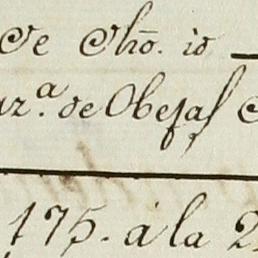 de dho. id
za. de Obejas
175. á la 2